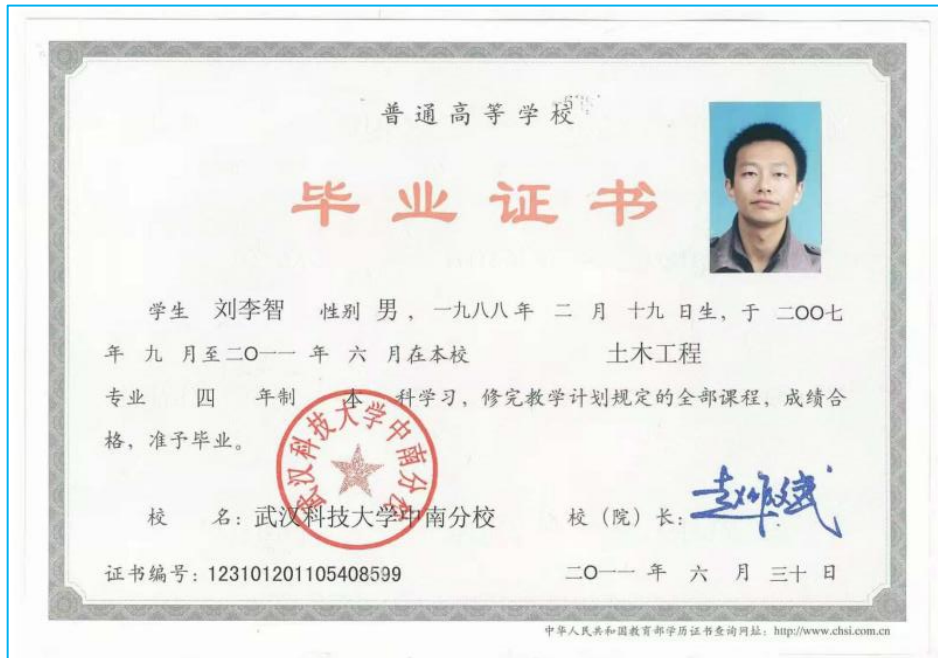 普通高等学校
毕业证书
学生 刘李智 性别 男，一九八八年 二 月 十九 日生，于 二〇〇七
年 九 月至二〇一一 年 六 月在本校 土木工程
专业 四 年制 本 科学习，修完教学计划规定的全部课程，成绩合
格，准予毕业。
武汉科技大学中南分校
校 名：武汉科技大学中南分校 校（院）长：赵作斌
证书编号：123101201105408599 二〇一一 年 六 月 三十 日
中华人民共和国教育部学历证书查询网址：http://www.chsi.com.cn